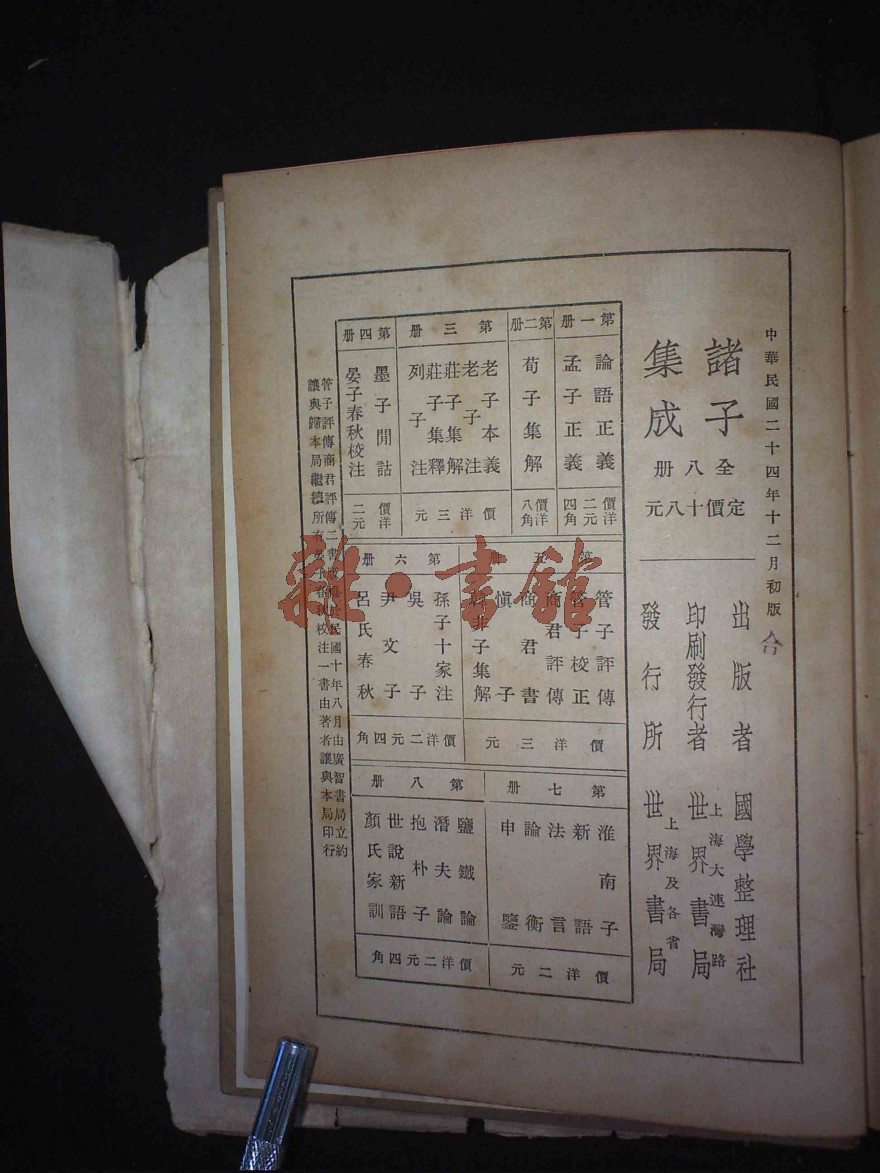 中華民國二十四年十二月初版
諸子
集成
全八册
定價十八元
出版者 國學整理社
印刷發行者 上海大連灣路 世界書局
發行所 上海及各省 世界書局
第一册
論語正義
孟子正義
價洋二元四角
第二册
荀子集解
價洋八角
第三册
老子本義
老子注
莊子集解
莊子集釋
列子注
價洋三元
第四册
墨子閒詁
晏子春秋校注
價洋二元
第五册
管子評傳
管子校正
商君評傳
商君書
愼子
韓非子集解
價洋三元
第六册
孫子十家注
吳子
尹文子
呂氏春秋
價洋二元四角
第七册
淮南子
新語
法言
論衡
申鑒
價洋二元
第八册
鹽鐵論
潛夫論
抱朴子
世說新語
顏氏家訓
價洋二元四角
管子評傳商君評傳二書 民國十年八月由廣智書局立約
讓與歸本局繼續所有晏子春秋校注一書由著者讓與本局印行
雜·書館